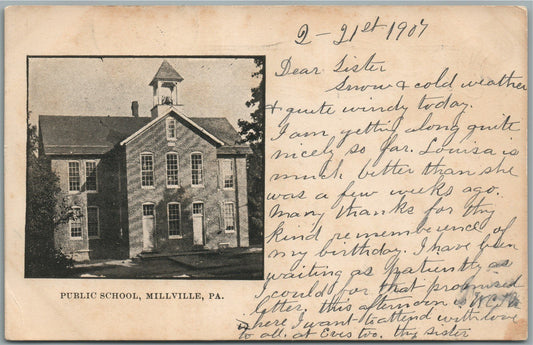 2-21st 1907
Dear Sister
Snow & cold weather
& quite windy today.
I am getting along quite
nicely so far. Louisa is
much better than she
was a few weeks ago.
Many thanks for thy
kind rememberence of
my birthday. I have been
waiting as patiently as
I could for that promised
letter. this afternoon is W.C.T.U.
where I want to attend with love
to all. at Eves too. thy sister
PUBLIC SCHOOL, MILLVILLE, PA.